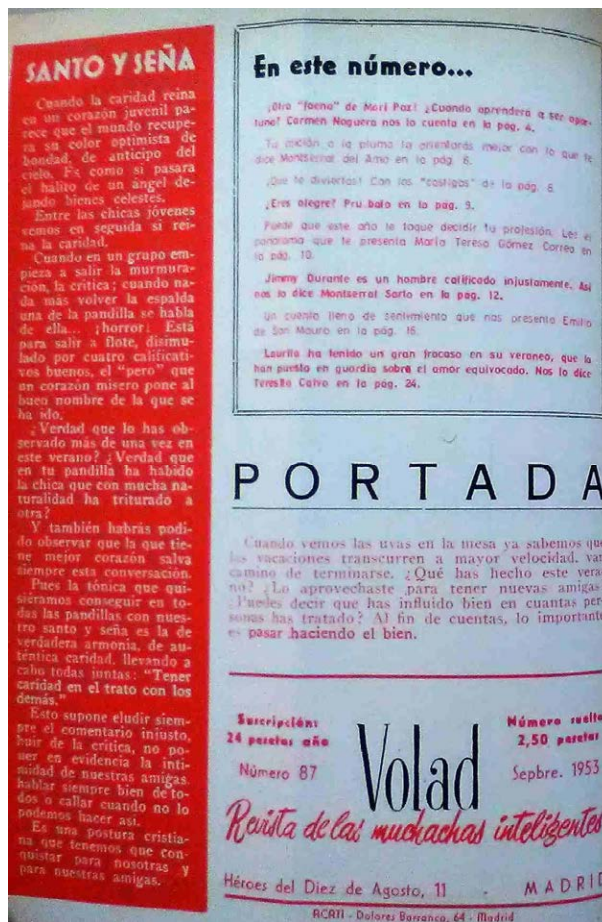 SANTO Y SEÑA
Cuando la caridad reina
en un corazón juvenil pa-
rece que el mundo recupe-
ra su color optimista de
bondad, de anticipo del
cielo. Es como si pasara
el hálito de un ángel de-
jando bienes celestes.
Entre las chicas jóvenes
vemos en seguida si rei-
na la caridad.
Cuando en un grupo em-
pieza a salir la murmura-
ción, la crítica; cuando na-
da más volver la espalda
una de la pandilla se habla
de ella... ¡horror! Está
para salir a flote, disimu-
lado por cuatro calificati-
vos buenos, el "pero" que
un corazón mísero pone al
buen nombre de la que se
ha ido.
¿Verdad que lo has ob-
servado más de una vez en
este verano? ¿Verdad que
en tu pandilla ha habido
la chica que con mucha na-
turalidad ha triturado a
otra?
Y también habrás podi-
do observar que la que tie-
ne mejor corazón salva
siempre esta conversación.
Pues la tónica que qui-
siéramos conseguir en to-
das las pandillas con nues-
tro santo y seña es la de
verdadera armonía, de au-
téntica caridad, llevando a
cabo todas juntas: "Tener
caridad en el trato con los
demás."
Esto supone eludir siem-
pre el comentario injusto,
huir de la crítica, no po-
ner en evidencia la inti-
midad de nuestras amigas,
hablar siempre bien de to-
dos o callar cuando no lo
podemos hacer así.
Es una postura cristia-
na que tenemos que con-
quistar para nosotras y
para nuestras amigas.
En este número...
¡Otra "faena" de Mari Paz! ¿Cuándo aprenderá a ser opor-
tuna? Carmen Noguera nos lo cuenta en la pág. 4.
Tu afición a la pluma la orientarás mejor con lo que te
dice Montserrat del Amo en la pág. 6.
¡Que te diviertas! Con los "castigos" de la pág. 8.
¿Eres alegre? Pru bala en la pág. 9.
Puede que este año te toque decidir tu profesión. Lee el
panorama que te presenta María Teresa Gómez Correa en
la pág. 10.
Jimmy Durante es un hombre calificado injustamente. Así
nos lo dice Montserrat Sarto en la pag. 12.
Un cuento lleno de sentimiento que nos presenta Emilio
de San Mauro en la pág. 16.
Laurita ha tenido un gran fracaso en su veraneo, que la
han puesto en guardia sobre el amor equivocado. Nos lo dice
Teresita Calvo en la pág. 24.
PORTADA
Cuando vemos las uvas en la mesa ya sabemos que
las vacaciones transcurren a mayor velocidad, van
camino de terminarse. ¿Qué has hecho este vera-
no? ¿Lo aprovechaste para tener nuevas amigas?
¿Puedes decir que has influido bien en cuantas per-
sonas has tratado? Al fin de cuentas, lo importante
es pasar haciendo el bien.
Suscripción:
24 pesetas año
Número 87
Volad
Número suelto
2,50 pesetas
Sepbre. 1953
Revista de las muchachas inteligentes
Héroes del Diez de Agosto, 11 MADRID
ACATI - Dolores Barranco, 64 - Madrid